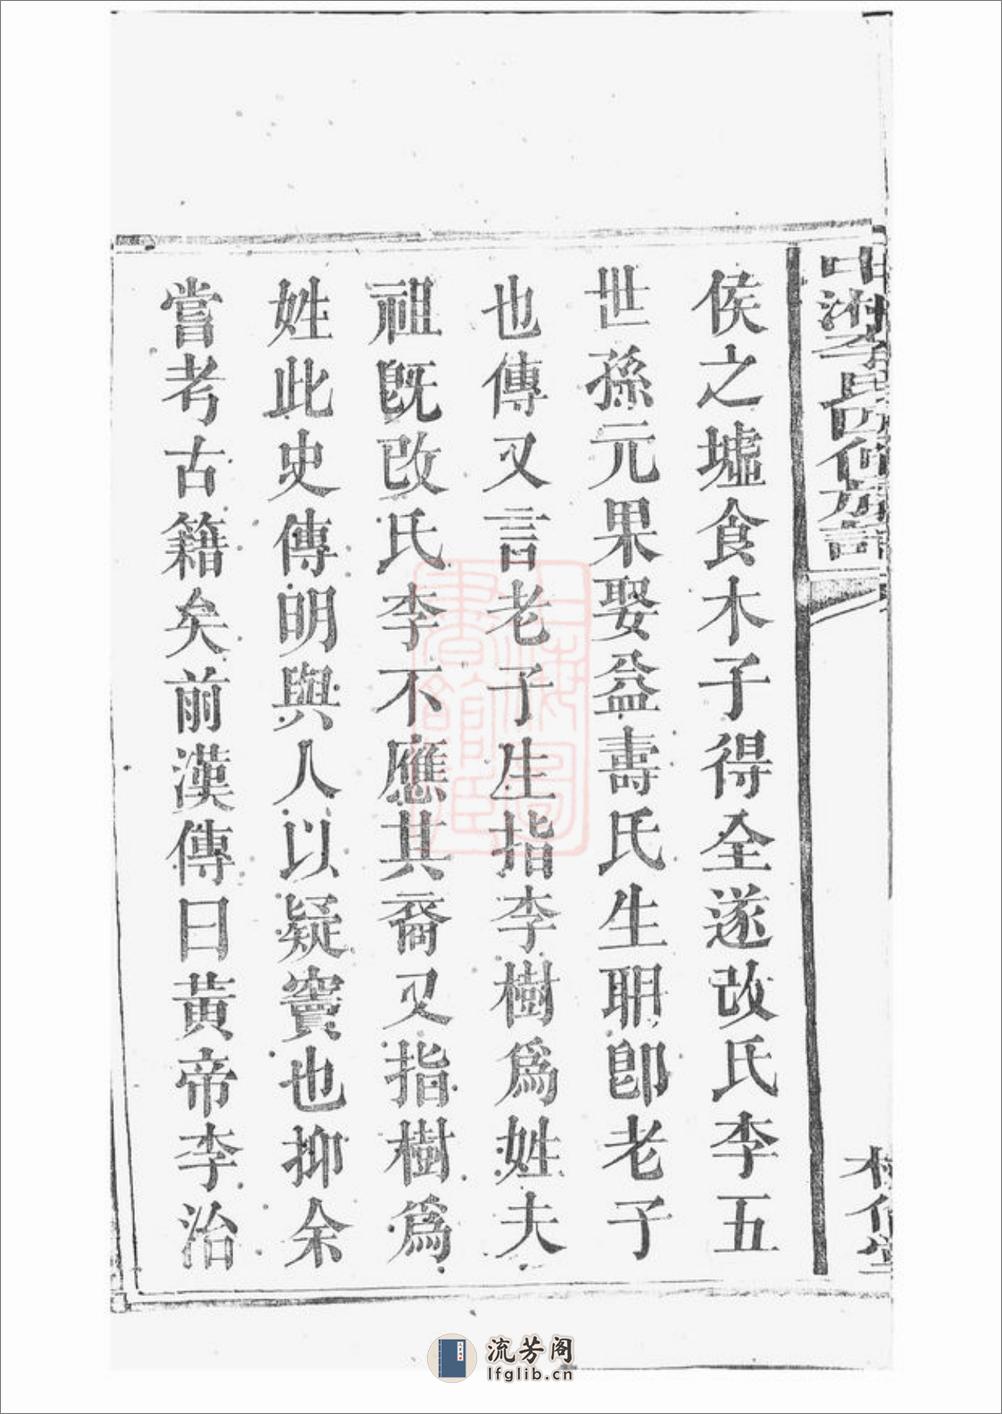 侯之墟食木子得全遂改氏李五
世孫元果娶益壽氏生耼卽老子
也傳又言老子生指李樹爲姓夫
祖旣改氏李不應其裔又指樹爲
姓此史傳明與人以疑竇也抑余
嘗考古籍矣前漢傳曰黃帝李治
流芳阁
lfglib.cn